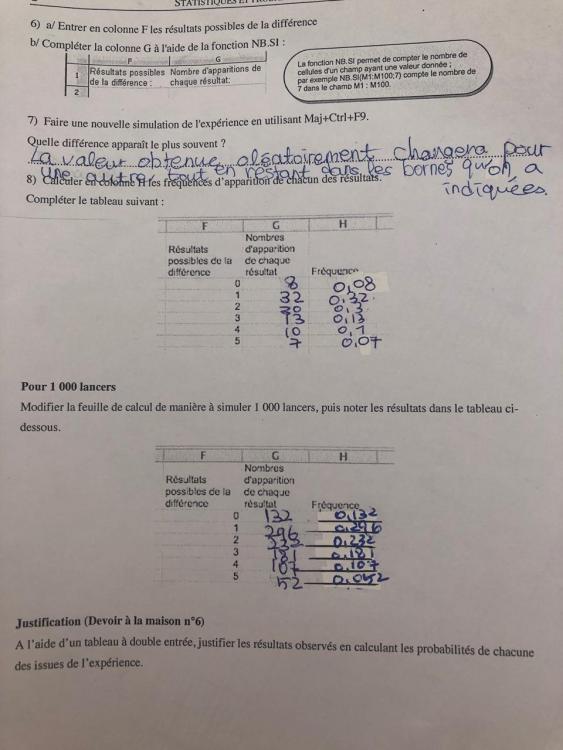 STATISTIQUES ET
6) a/ Entrer en colonne F les résultats possibles de la différence
b/ Compléter la colonne G à l'aide de la fonction NB.SI :
F G
1 Résultats possibles de la différence : Nombre d'apparitions de chaque résultat:
2
La fonction NB.SI permet de compter le nombre de
cellules d'un champ ayant une valeur donnée ;
par exemple NB.SI(M1:M100;7) compte le nombre de
7 dans le champ M1 : M100.
7) Faire une nouvelle simulation de l'expérience en utilisant Maj+Ctrl+F9.
Quelle différence apparaît le plus souvent ?
La valeur obtenue aléatoirement changera pour
une autre, tout en restant dans les bornes qu'on a
indiquées.
8) Calculer en colonne H les fréquences d'apparition de chacun des résultats.
Compléter le tableau suivant :
F G H
Résultats possibles de la différence Nombres d'apparition de chaque résultat Fréquence
0 8 0,08
1 32 0,32
2 30 0,3
3 13 0,13
4 10 0,1
5 7 0,07
Pour 1 000 lancers
Modifier la feuille de calcul de manière à simuler 1 000 lancers, puis noter les résultats dans le tableau ci-
dessous.
F G H
Résultats possibles de la différence Nombres d'apparition de chaque résultat Fréquence
0 132 0,132
1 296 0,296
2 232 0,232
3 181 0,181
4 107 0,107
5 52 0,052
Justification (Devoir à la maison n°6)
A l'aide d'un tableau à double entrée, justifier les résultats observés en calculant les probabilités de chacune
des issues de l'expérience.